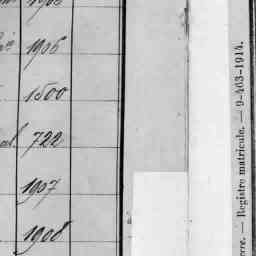 1905
1500
722
1907
1908
erre. — Registre matricule. — 9-403-1914.